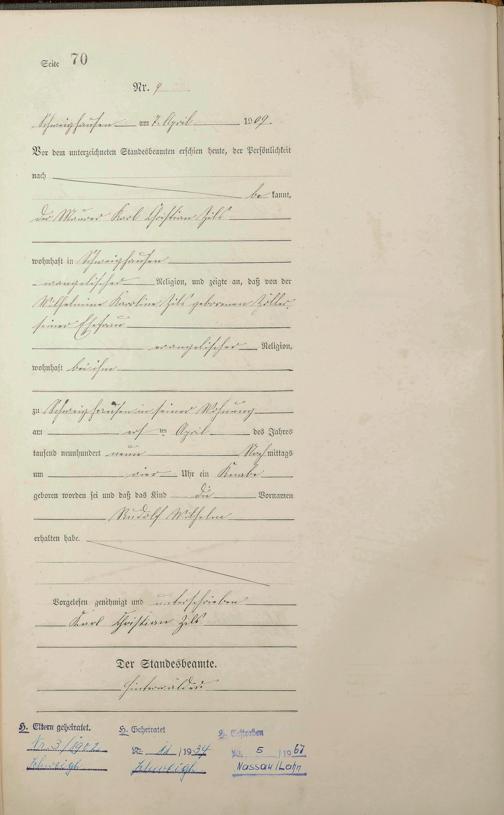 Seite 70
Nr. 9
Schweighausen am 7. April 1909.
Vor dem unterzeichneten Standesbeamten erschien heute, der Persönlichkeit
nach
be kannt,
der Maurer Karl Christian Zils
wohnhaft in Schweighausen
evangelischer Religion, und zeigte an, daß von der
Wilhelmine Karoline Zils geborenen
seiner Ehefrau
evangelischer Religion,
wohnhaft bei ihm
zu Schweighausen in seiner Wohnung
am ersten April des Jahres
tausend neunhundert neun Nach mittags
um vier Uhr ein Knabe
geboren worden sei und daß das Kind die Vornamen
Rudolf Wilhelm
erhalten habe.
Vorgelesen genehmigt und unterschrieben
Karl Christian Zils
Der Standesbeamte.
Hinterwälder
H. Eltern geheiratet.
Nr. 3/1902
Schweigh.
H. Geheiratet
Nr. 11 / 1934
Schweigh.
H. Gestorben
Nr. 5 / 1967
Nassau/Lahn